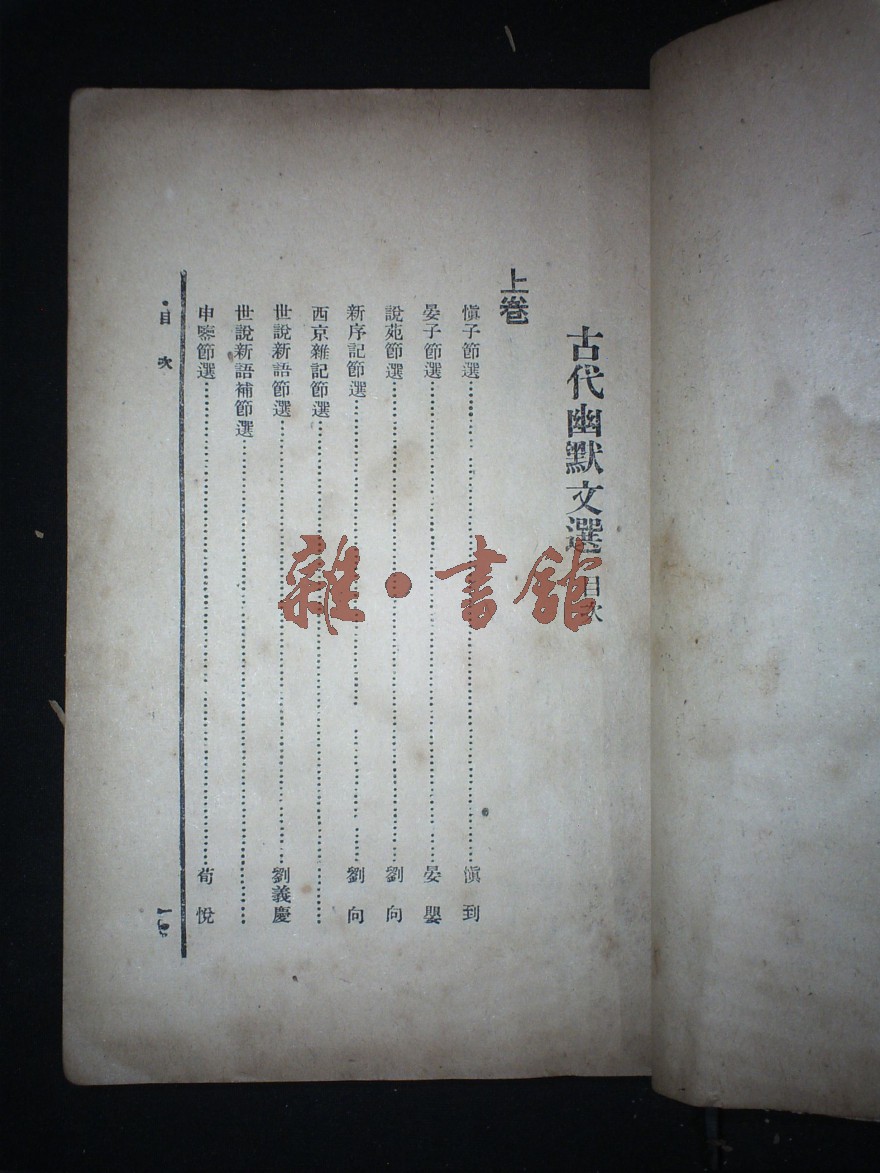 古代幽默文選 目次
上卷
愼子節選……愼到
晏子節選……晏嬰
說苑節選……劉向
新序記節選……劉向
西京雜記節選……
世說新語節選……劉義慶
世說新語補節選……
申鑒節選……荀悅
目次
一
雜·書館